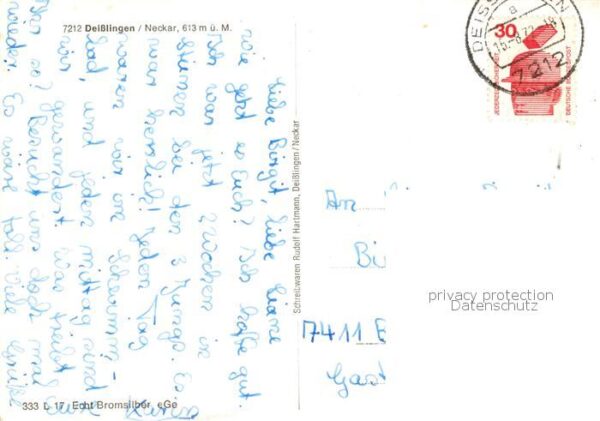 7212 Deißlingen / Neckar, 613 m ü. M.
Liebe Birgit, liebe Liane
wie geht es Euch? Ich hoffe gut.
Ich war jetzt 2 Wochen in
bei den 3 Jungs. Es
war herrlich! Jeden Tag
waren wir im Schwimm-
bad, und jeden mittag sind
wir gewandert. Was treibt
Ihr so? Besucht uns doch mal
wieder. Es wäre toll. Viele Grüße
333 L 17 Echt Bromsilber eGe
Schreibwaren Rudolf Hartmann, Deißlingen/Neckar
30
JEDERZEIT SICHERHEIT
DEUTSCHE BUNDESPOST
DEISSLINGEN
a
7212
An
Bi
7411
Gast
privacy protection
Datenschutz